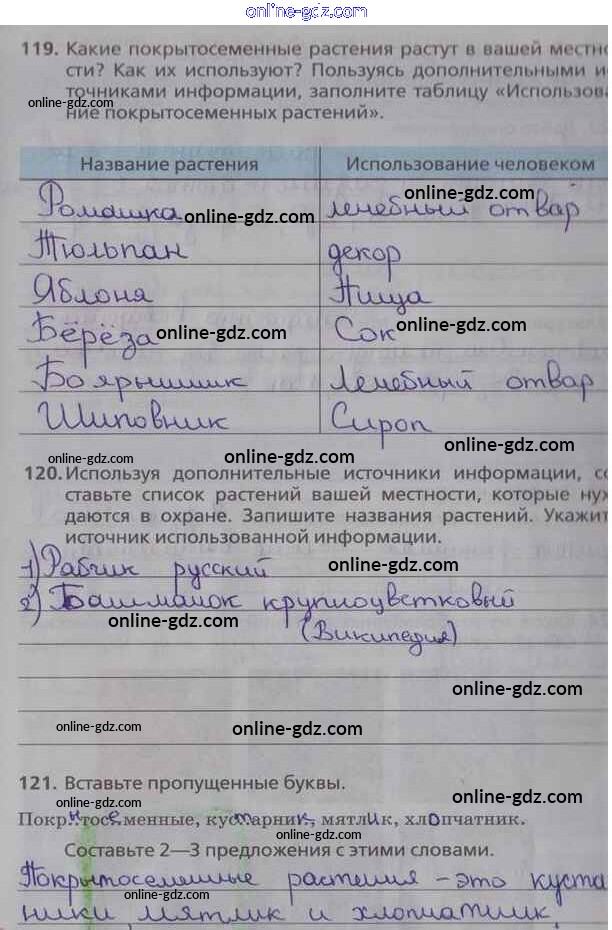 online-gdz.com
119. Какие покрытосеменные растения растут в вашей местно
сти? Как их используют? Пользуясь дополнительными и
точниками информации, заполните таблицу «Использова
online-gdz.com
ние покрытосеменных растений».
Название растения Использование человеком
Ромашка online-gdz.com лечебный отвар online-gdz.com
Тюльпан декор
Яблоня Пища
Берёза online-gdz.com Сок online-gdz.com
Боярышник Лечебный отвар
Шиповник Сироп
online-gdz.com online-gdz.com online-gdz.com
120. Используя дополнительные источники информации, со
ставьте список растений вашей местности, которые нуж
даются в охране. Запишите названия растений. Укажит
источник использованной информации.
1) Рабчик русский online-gdz.com
2) Башмачок крупноцветковый
online-gdz.com (Википедия)
online-gdz.com
online-gdz.com online-gdz.com
121. Вставьте пропущенные буквы.
online-gdz.com
Покрытосеменные, кустарник, мятлик, хлопчатник.
online-gdz.com
Составьте 2—3 предложения с этими словами.
Покрытосеменные растения – это куста
ники, мятлик и хлопчатник.